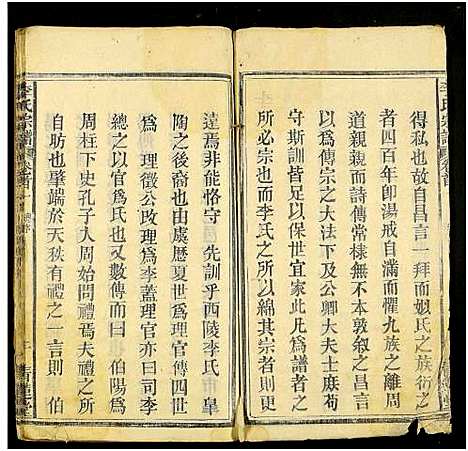 得私也故自昌言一拜而姒氏之族衍之
者四百年卽湯戒自滿而懼九族之離周
道親親而詩傳常棣無不本敦敘之昌言
以爲傳宗之大法下及公卿大夫士麻苟
守斯訓皆以保世宜家此凡爲譜者之
所必宗也而李氏之所以綿其宗者則更
達焉非能恪守 先訓乎西陵李氏 皐
陶之後裔也由虞歷夏世爲理官傳四世
爲 理徵公政理爲李蓋理官亦曰司李
總之以官爲氏也又數傳而曰 伯陽爲
周柱下史孔子入周始問禮焉夫禮之所
自昉也肇端於天秩有禮之一言則 伯
李氏宗譜